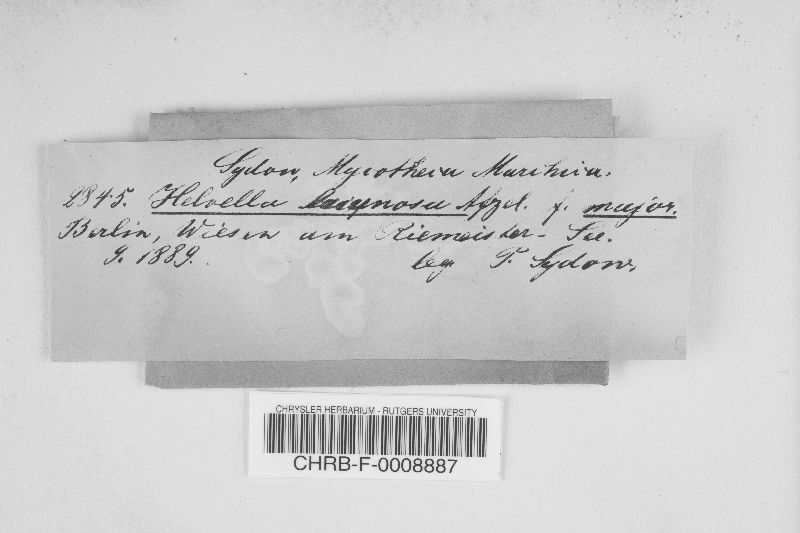 Sydow, Mycotheca Marchica.
2845. Helvella lacunosa Afzel. f. major.
Berlin, Wiesen am Riemeister-See.
9. 1889. leg P. Sydow.
CHRYSLER HERBARIUM - RUTGERS UNIVERSITY
CHRB-F-0008887